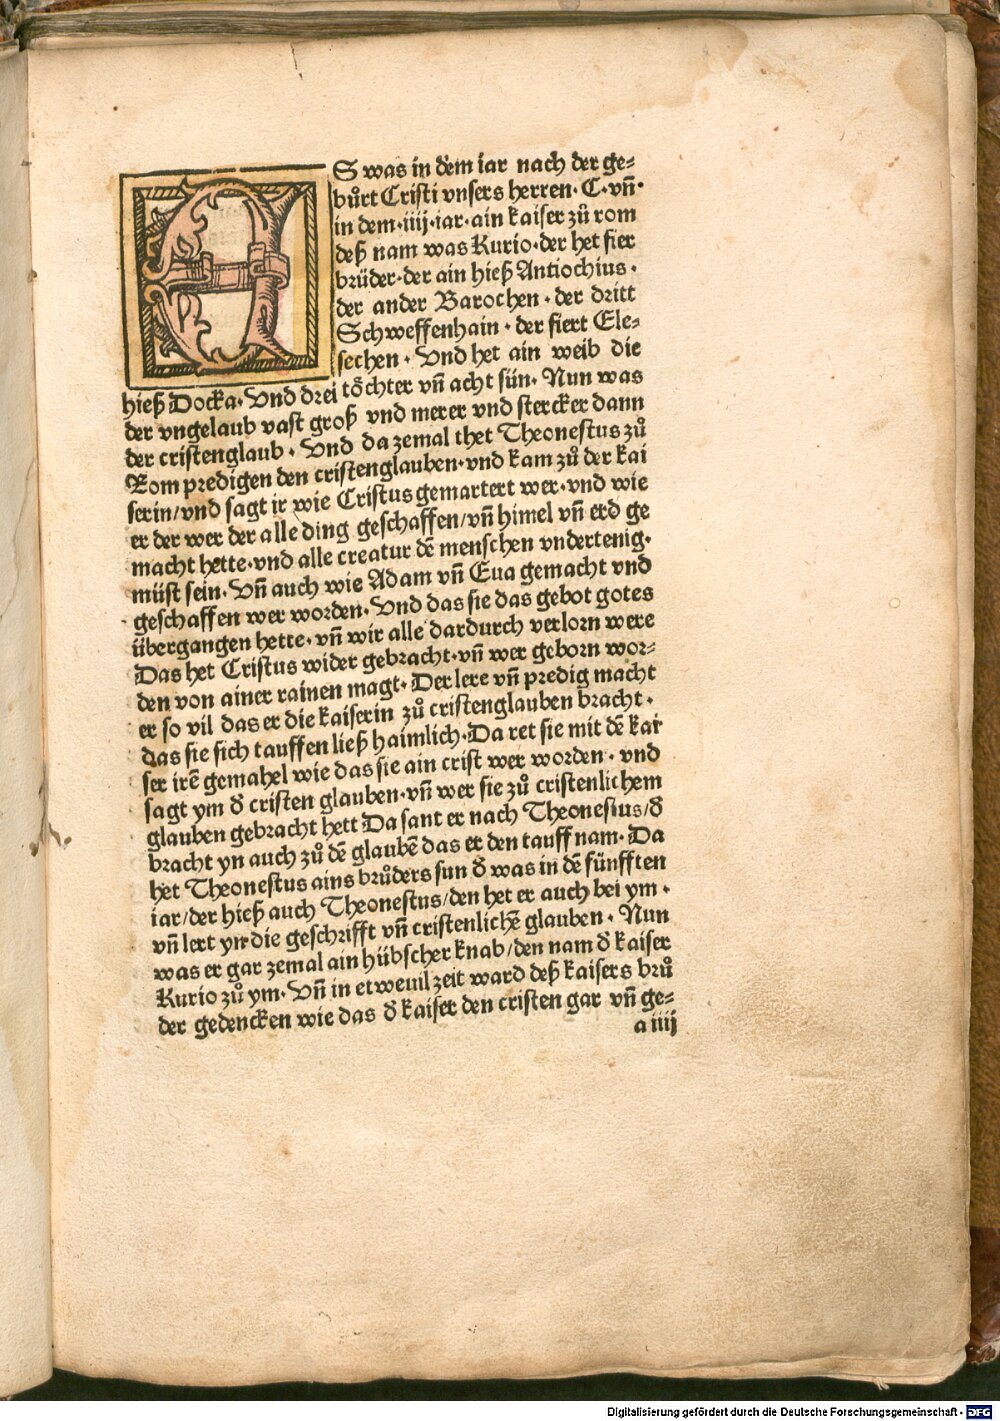 ES was in dem iar nach der ge⸗
bůrt Cristi vnsers herren· C·vn̄·
in dem·iiij·iar·ain kaiser zů rom
deß nam was Kurio·der het fier
brüder·der ain hieß Antiochius·
der ander Barochen·der dritt
Schweffenhain·der fiert Ele⸗
sechen·Vnd het ain weib die
hieß Docka·Vnd drei tôchter vn̄ acht sün·Nun was
der vngelaub vast groß vnd merer vnd stercker dann
der cristenglaub·Vnd da zemal thet Theonestus zů
Rom predigen den cristenglauben·vnd kam zů der kai
serin/vnd sagt ir wie Cristus gemartert wer·vnd wie
er der wer der alle ding geschaffen/vn̄ himel vn̄ erd ge
macht hette·vnd alle creatur dē menschen vndertenig·
müst sein·Vn̄ auch wie Adam vn̄ Eua gemacht vnd
geschaffen wer worden·Vnd das sie das gebot gotes
übergangen hette·vn̄ wir alle dardurch verlorn were
Das het Cristus wider gebracht·vn̄ wer geborn wor⸗
den von ainer rainen magt·Der lere vn̄ predig macht
er so vil das er die kaiserin zů cristenglauben bracht·
das sie sich tauffen ließ haimlich·Da ret sie mit dē kai
ser irē gemahel wie das sie ain crist wer worden·vnd
sagt ym d̄ cristen glauben·vn̄ wer sie zů cristenlichem
glauben gebracht hett Da sant er nach Theonestus/d̄
bracht yn auch zů dē glaubē das er den tauff nam·Da
het Theonestus ains brůders sun d̄ was in dē fünfften
iar/der hieß auch Theonestus/den het er auch bei ym·
vn̄ lert yn die geschrifft vn̄ cristenlichē glauben·Nun
was er gar zemal ain hübscher knab/den nam d̄ kaiser
Kurio zů ym·Vn̄ in etweuil zeit ward deß kaisers brů
der gedencken wie das d̄ kaiser den cristen gar vn̄ ge⸗
a iiij
Digitalisierung gefördert durch die Deutsche Forschungsgemeinschaft - DFG